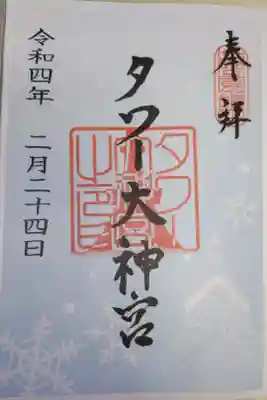 奉拝
タワー大神宮
令和四年 二月二十四日